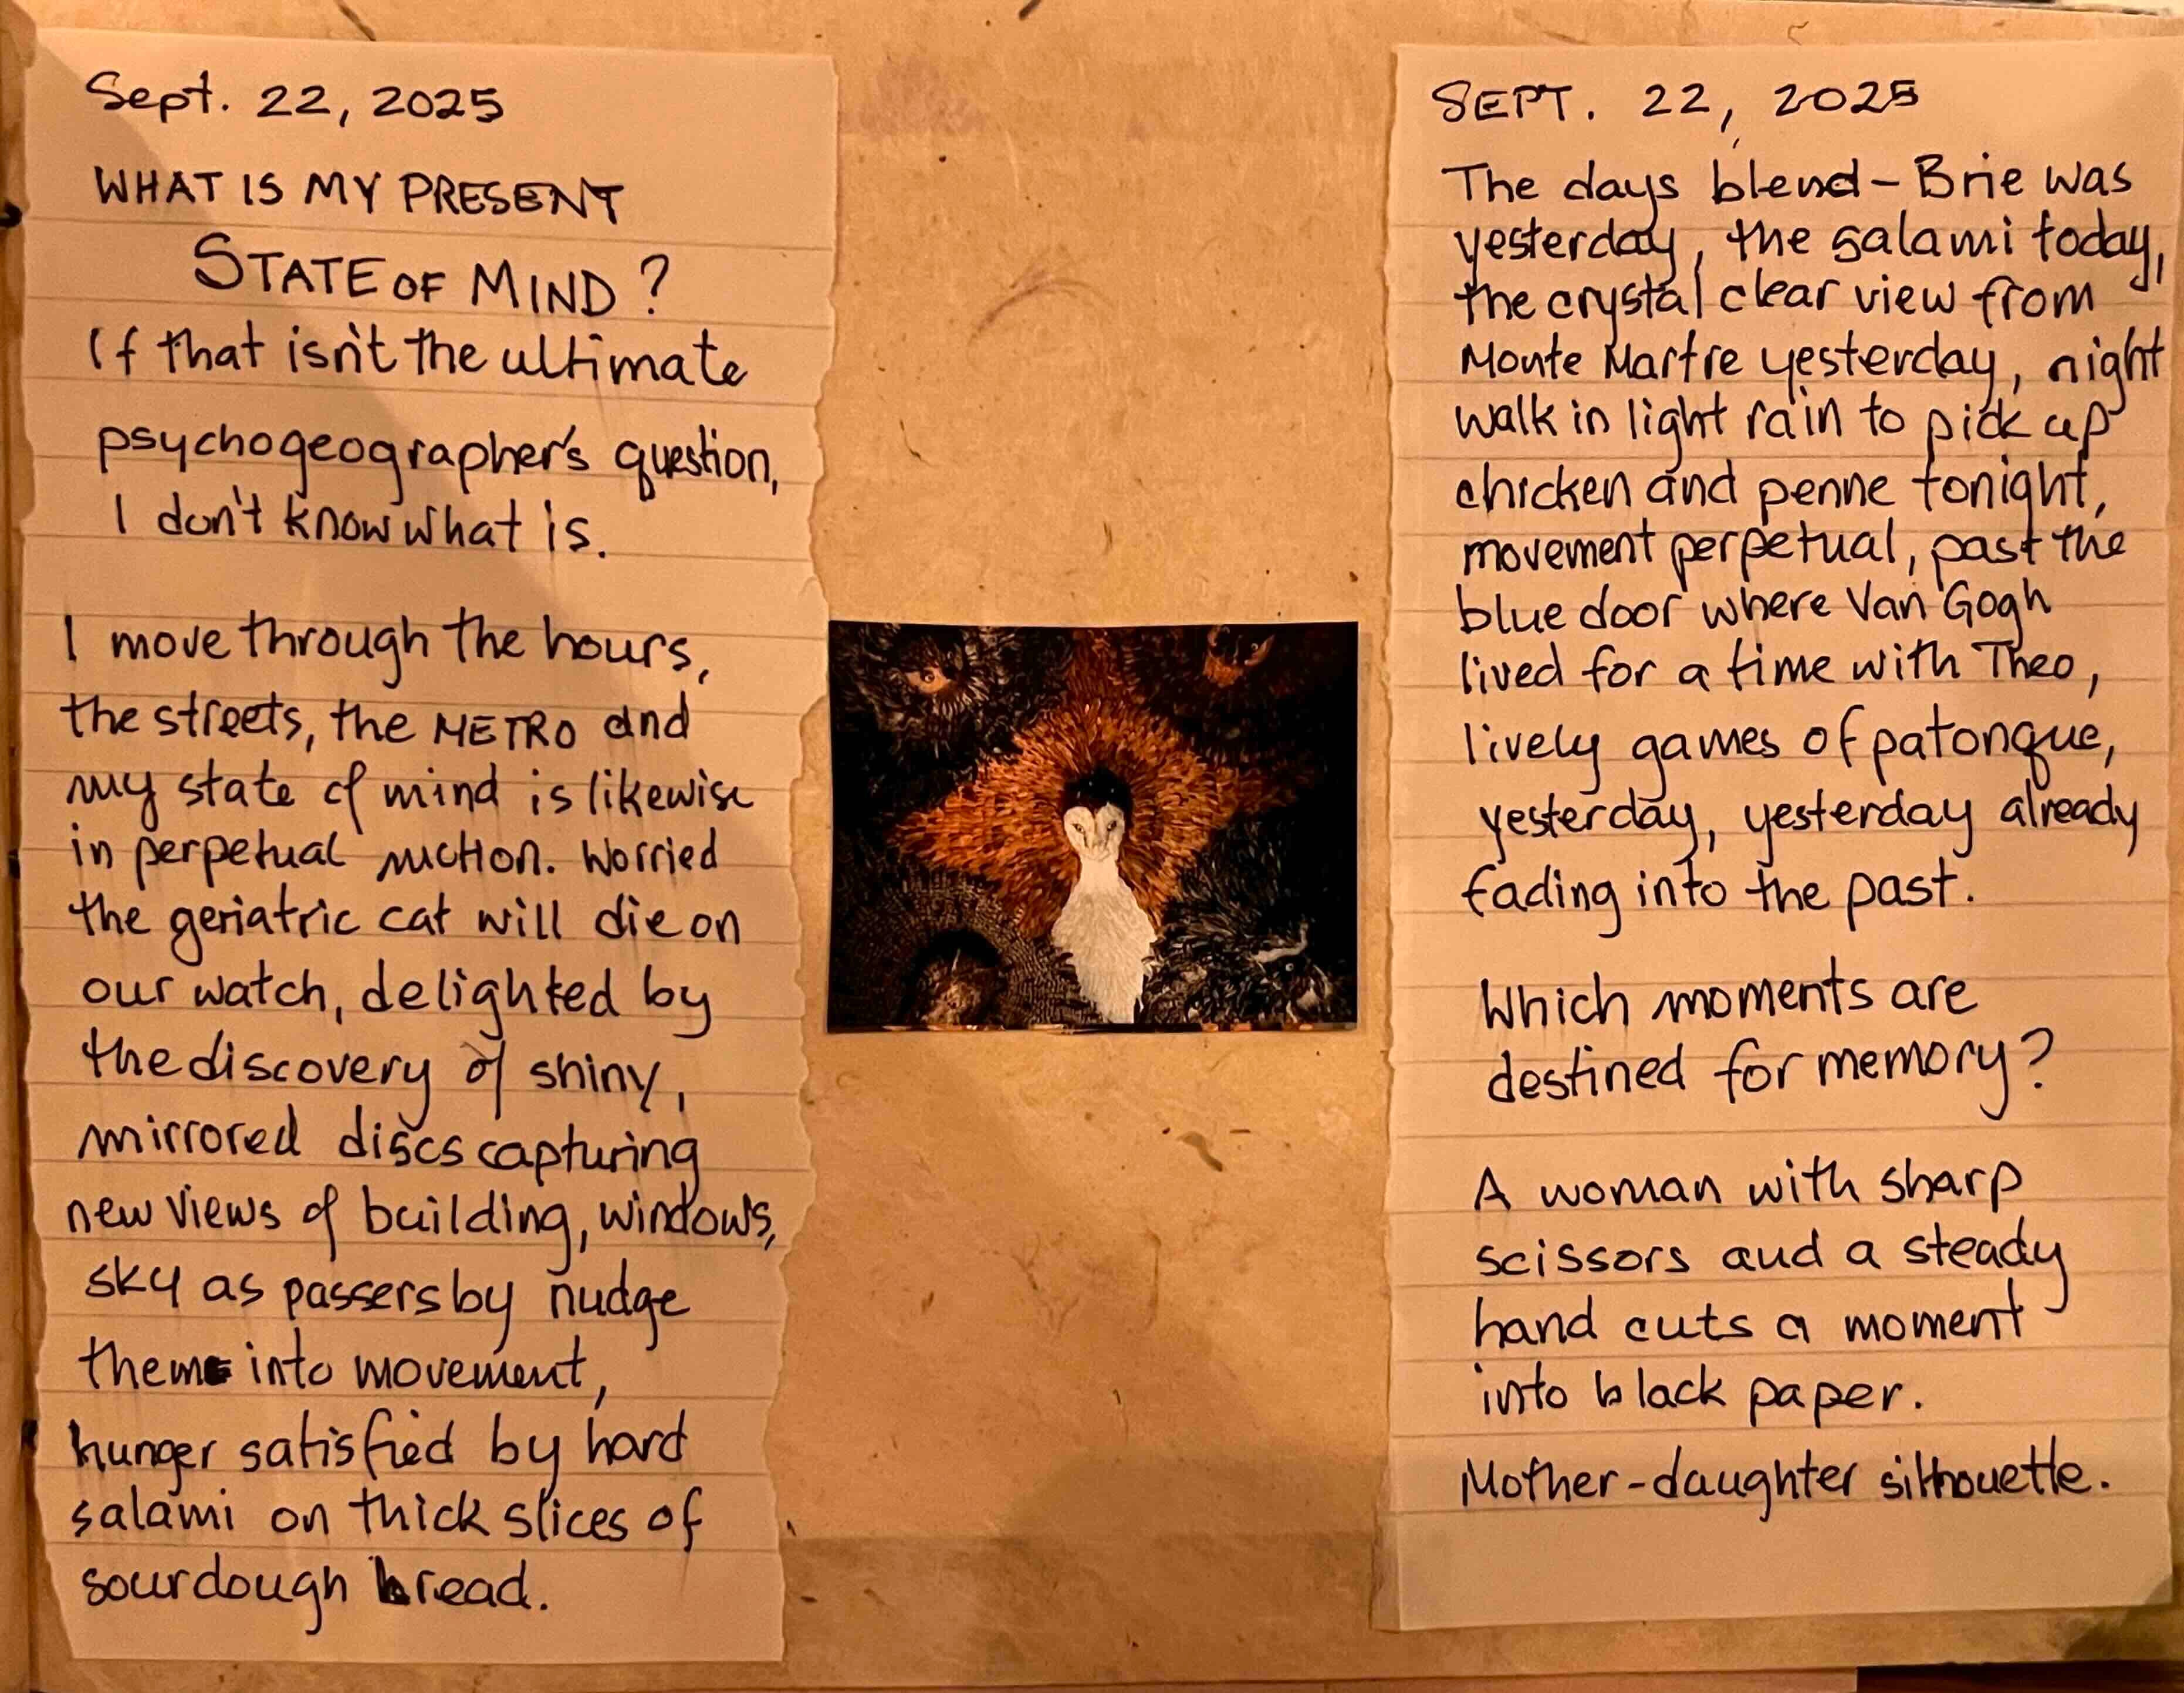 Sept. 22, 2025
WHAT IS MY PRESENT
STATE OF MIND?
If that isn't the ultimate
psychogeographer's question,
I don't know what is.
I move through the hours,
the streets, the METRO and
my state of mind is likewise
in perpetual motion. Worried
the geriatric cat will die on
our watch, delighted by
the discovery of shiny,
mirrored discs capturing
new views of building, windows,
sky as passersby nudge
them into movement,
hunger satisfied by hard
salami on thick slices of
sourdough bread.
SEPT. 22, 2025
The days blend - Brie was
yesterday, the salami today,
the crystal clear view from
Monte Martre yesterday, night
walk in light rain to pick up
chicken and penne tonight,
movement perpetual, past the
blue door where Van Gogh
lived for a time with Theo,
lively games of patonque,
yesterday, yesterday already
fading into the past.
Which moments are
destined for memory?
A woman with sharp
scissors and a steady
hand cuts a moment
into black paper.
Mother-daughter silhouette.